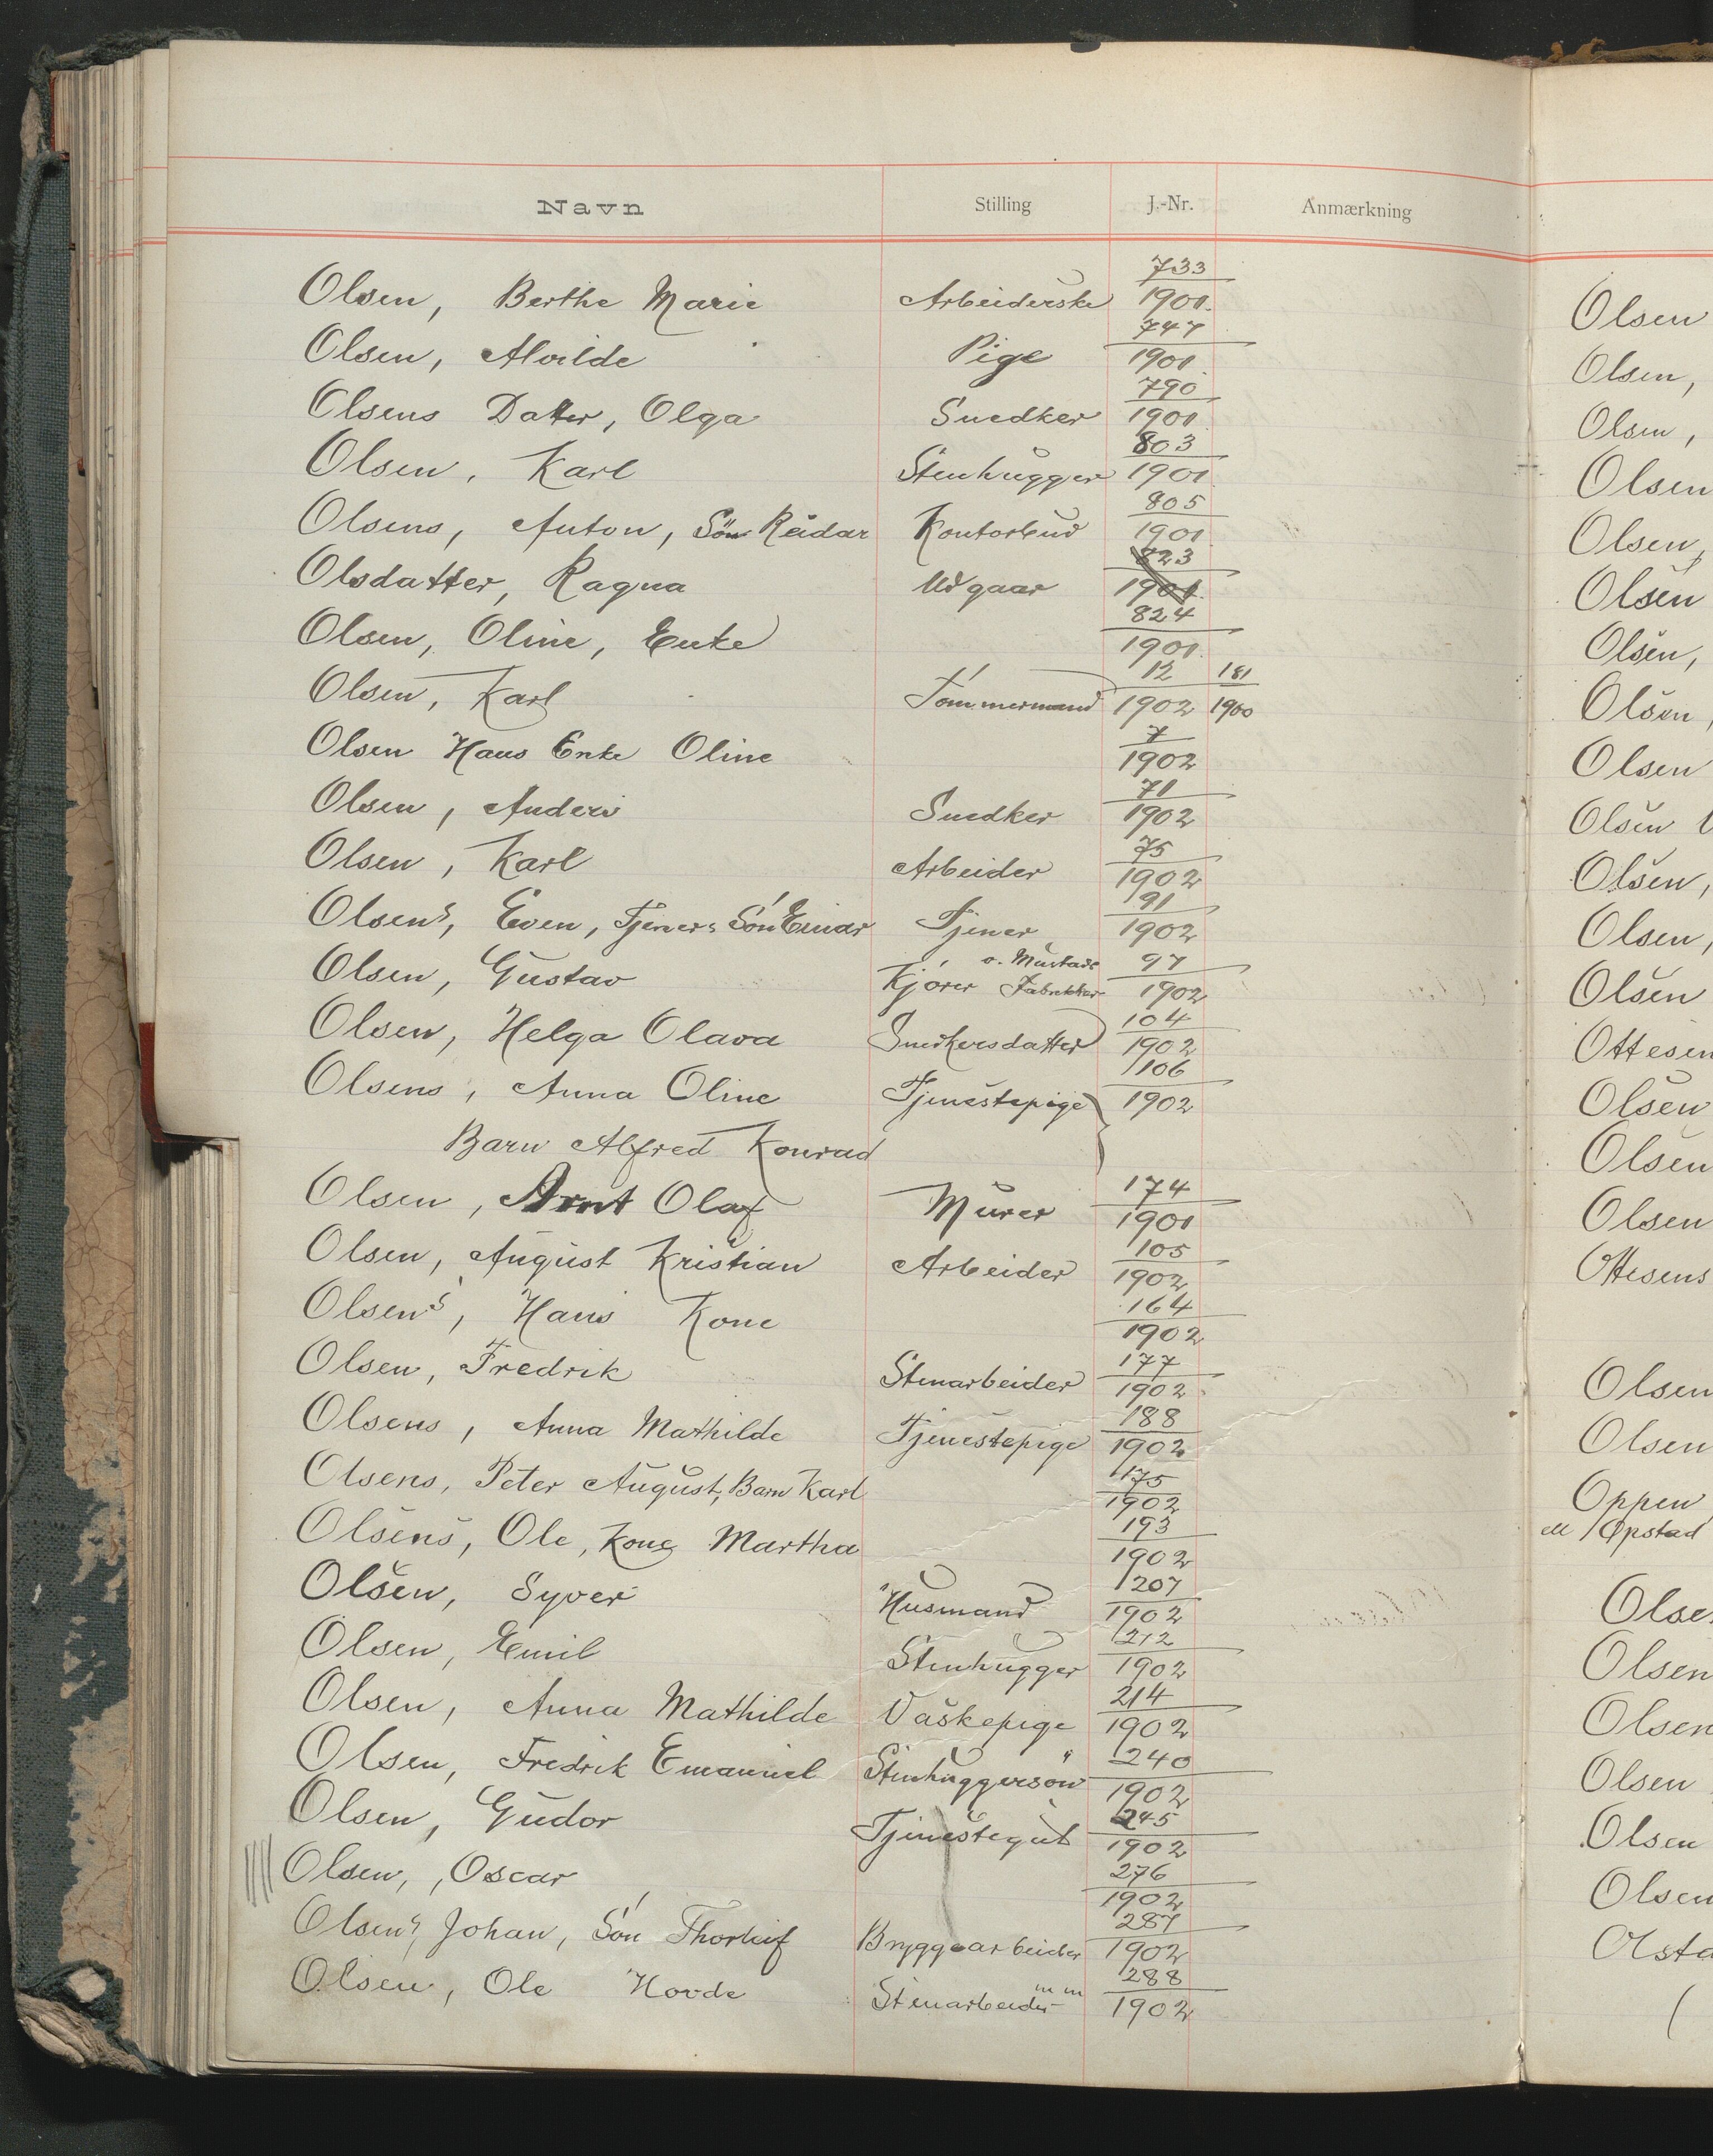 Navn Stilling J.-Nr. Anmærkning
Olsen, Berthe Marie Arbeiderske 733/1901.
Olsen, Alvilde Pige 747/1901
Olsens Datter, Olga Snedker 790/1901
Olsen, Karl Stenhugger 803/1901
Olsens, Anton, Søn Reidar Kontorbud 805/1901
Olsdatter, Ragna Udgaar 823/1901
Olsen, Oline, Enke 824/1901
Olsen, Karl Tømmermand 12/1902 181/1900
Olsen Hans Enke Oline 7/1902
Olsen, Anders Snedker 71/1902
Olsen, Karl Arbeider 75/1902
Olsens, Even, Tjeners Søn Einar Tjener 91/1902
Olsen, Gustav Kjører o. Mustads Fabrikker 97/1902
Olsen, Helga Olava Snedkersdatter 104/1902
Olsens, Anna Oline Tjenestepige 106/1902
Barn Alfred Konrad
Olsen, Arnt Olaf Murer 174/1901
Olsen, August Kristian Arbeider 105/1902
Olsens, Hans Kone 164/1902
Olsen, Fredrik Stenarbeider 177/1902
Olsens, Anna Mathilde Tjenestepige 188/1902
Olsens, Peter August, Barn Karl 175/1902
Olsens, Ole, Kone Martha 193/1902
Olsen, Syver Husmand 207/1902
Olsen, Emil Stenhugger 212/1902
Olsen, Anna Mathilde Vaskepige 214/1902
Olsen, Fredrik Emanuel Stenhuggersøn 240/1902
Olsen, Gudor Tjenestegut 245/1902
Olsen, , Oscar 276/1902
Olsens, Johan, Søn Thorleif Bryggearbeider 287/1902
Olsen, Ole Hovde Stenarbeider m m 288/1902
Olsen
Olsen,
Olsen,
Olsen
Olsen,
Olsen
Olsen,
Olsen,
Olsen
Olsen
Olsen,
Olsen,
Olsen
Ottesen
Olsen
Olsen
Olsen
Ottesens
Olsen
Olsen
Oppen
ell Opstad
Olsen
Olsen
Olsen
Olsen
Olsen
Olsen